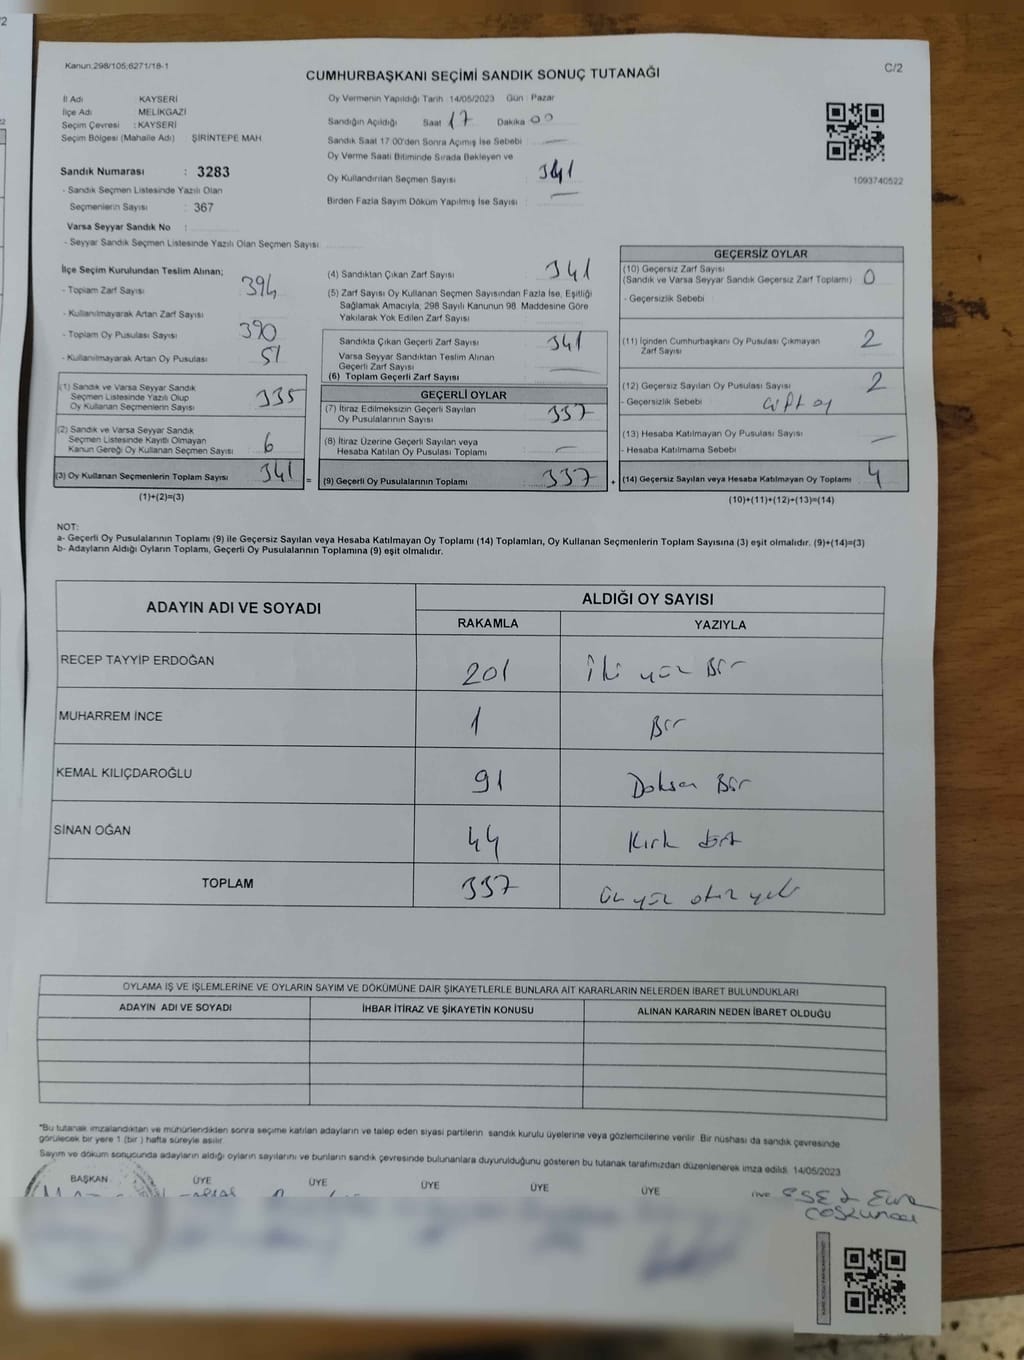 Kanun.298/105;6271/18-1
C/2
CUMHURBAŞKANI SEÇİMİ SANDIK SONUÇ TUTANAĞI
İl Adı KAYSERİ
İlçe Adı MELİKGAZİ
Seçim Çevresi : KAYSERİ
Seçim Bölgesi (Mahalle Adı) ŞİRİNTEPE MAH.
Sandık Numarası : 3283
- Sandık Seçmen Listesinde Yazılı Olan
Seçmenlerin Sayısı : 367
Varsa Seyyar Sandık No :
- Seyyar Sandık Seçmen Listesinde Yazılı Olan Seçmen Sayısı
Oy Vermenin Yapıldığı Tarih 14/05/2023 Gün : Pazar
Sandığın Açıldığı Saat 17 Dakika 00
Sandık Saat 17.00'den Sonra Açmış İse Sebebi
Oy Verme Saati Bitiminde Sırada Bekleyen ve
Oy Kullandırılan Seçmen Sayısı 341
Birden Fazla Sayım Döküm Yapılmış İse Sayısı
1093740522
İlçe Seçim Kurulundan Teslim Alınan;
- Toplam Zarf Sayısı 394
- Kullanılmayarak Artan Zarf Sayısı
- Toplam Oy Pusulası Sayısı 390
- Kullanılmayarak Artan Oy Pusulası 51
(1) Sandık ve Varsa Seyyar Sandık
Seçmen Listesinde Yazılı Olup
Oy Kullanan Seçmenlerin Sayısı 335
(2) Sandık ve Varsa Seyyar Sandık
Seçmen Listesinde Kayıtlı Olmayan
Kanun Gereği Oy Kullanan Seçmen Sayısı 6
(3) Oy Kullanan Seçmenlerin Toplam Sayısı 341 =
(1)+(2)=(3)
(4) Sandıktan Çıkan Zarf Sayısı 341
(5) Zarf Sayısı Oy Kullanan Seçmen Sayısından Fazla İse, Eşitliği
Sağlamak Amacıyla, 298 Sayılı Kanunun 98. Maddesine Göre
Yakılarak Yok Edilen Zarf Sayısı
Sandıkta Çıkan Geçerli Zarf Sayısı 341
Varsa Seyyar Sandıktan Teslim Alınan
Geçerli Zarf Sayısı
(6) Toplam Geçerli Zarf Sayısı
GEÇERLİ OYLAR
(7) İtiraz Edilmeksizin Geçerli Sayılan
Oy Pusulalarının Sayısı 337
(8) İtiraz Üzerine Geçerli Sayılan veya
Hesaba Katılan Oy Pusulası Toplamı
(9) Geçerli Oy Pusulalarının Toplamı 337 +
GEÇERSİZ OYLAR
(10) Geçersiz Zarf Sayısı
(Sandık ve Varsa Seyyar Sandık Geçersiz Zarf Toplamı) 0
- Geçersizlik Sebebi
(11) İçinden Cumhurbaşkanı Oy Pusulası Çıkmayan
Zarf Sayısı 2
(12) Geçersiz Sayılan Oy Pusulası Sayısı 2
- Geçersizlik Sebebi çift oy
(13) Hesaba Katılmayan Oy Pusulası Sayısı
- Hesaba Katılmama Sebebi
(14) Geçersiz Sayılan veya Hesaba Katılmayan Oy Toplamı 4
(10)+(11)+(12)+(13)=(14)
NOT:
a- Geçerli Oy Pusulalarının Toplamı (9) ile Geçersiz Sayılan veya Hesaba Katılmayan Oy Toplamı (14) Toplamları, Oy Kullanan Seçmenlerin Toplam Sayısına (3) eşit olmalıdır. (9)+(14)=(3)
b- Adayların Aldığı Oyların Toplamı, Geçerli Oy Pusulalarının Toplamına (9) eşit olmalıdır.
ADAYIN ADI VE SOYADI ALDIĞI OY SAYISI
RAKAMLA YAZIYLA
RECEP TAYYİP ERDOĞAN 201 iki yüz Bir
MUHARREM İNCE 1 Bir
KEMAL KILIÇDAROĞLU 91 Doksan Bir
SİNAN OĞAN 44 Kırk dört
TOPLAM 337 üç yüz otuz yedi
OYLAMA İŞ VE İŞLEMLERİNE VE OYLARIN SAYIM VE DÖKÜMÜNE DAİR ŞİKAYETLERLE BUNLARA AİT KARARLARIN NELERDEN İBARET BULUNDUKLARI
ADAYIN ADI VE SOYADI İHBAR İTİRAZ VE ŞİKAYETİN KONUSU ALINAN KARARIN NEDEN İBARET OLDUĞU
*Bu tutanak imzalandıktan ve mühürlendikten sonra seçime katılan adayların ve talep eden siyasi partilerin sandık kurulu üyelerine veya gözlemcilerine verilir. Bir nüshası da sandık çevresinde
görülecek bir yere 1 (bir) hafta süreyle asılır.
Sayım ve döküm sonucunda adayların aldığı oyların sayılarını ve bunların sandık çevresinde bulunanlara duyurulduğunu gösteren bu tutanak tarafımızdan düzenlenerek imza edildi. 14/05/2023
BAŞKAN ÜYE ÜYE ÜYE ÜYE ÜYE